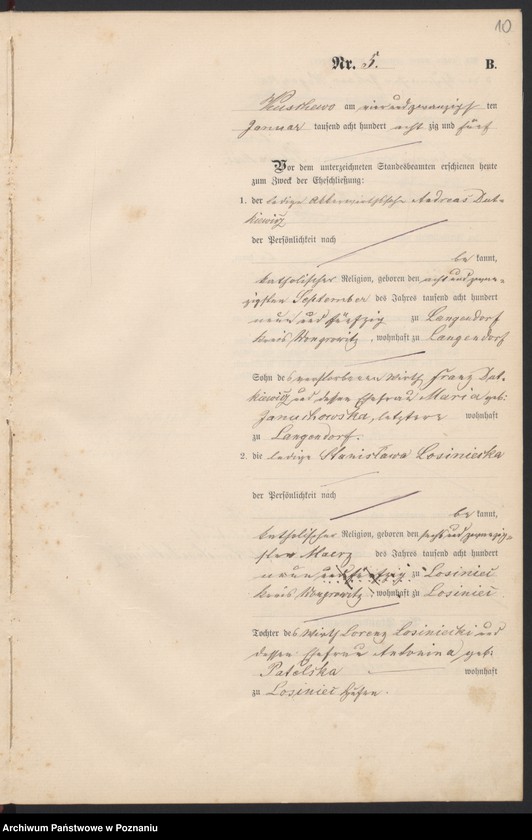 10
Nr. 5. B.
am vierundzwanzigsten
Januar tausend acht hundert acht zig und fünf
Vor dem unterzeichneten Standesbeamten erschienen heute
zum Zweck der Eheschließung:
1. der ledige Andreas Dat-
kiewicz
der Persönlichkeit nach
be kannt,
katholischer Religion, geboren den achtundzwan-
zigsten September des Jahres tausend acht hundert
neun und fünfzig zu Langendorf
Kreis Wongrowitz, wohnhaft zu Langendorf
Sohn des verstorbenen Wirth Franz Dat-
kiewicz und dessen Ehefrau Maria geb:
Januchowska, letztere wohnhaft
zu Langendorf.
2. die ledige Stanislawa Losiniecka
der Persönlichkeit nach
be kannt,
katholischer Religion, geboren den sechsundzwanzig-
sten Maerz des Jahres tausend acht hundert
zu Losiniec
Kreis Wongrowitz, wohnhaft zu Losiniec
Tochter des Wirth Lorenz Losiniecki und
dessen Ehefrau Antonina geb:
Patelska wohnhaft
zu Losiniec
Archiwum Państwowe w Poznaniu